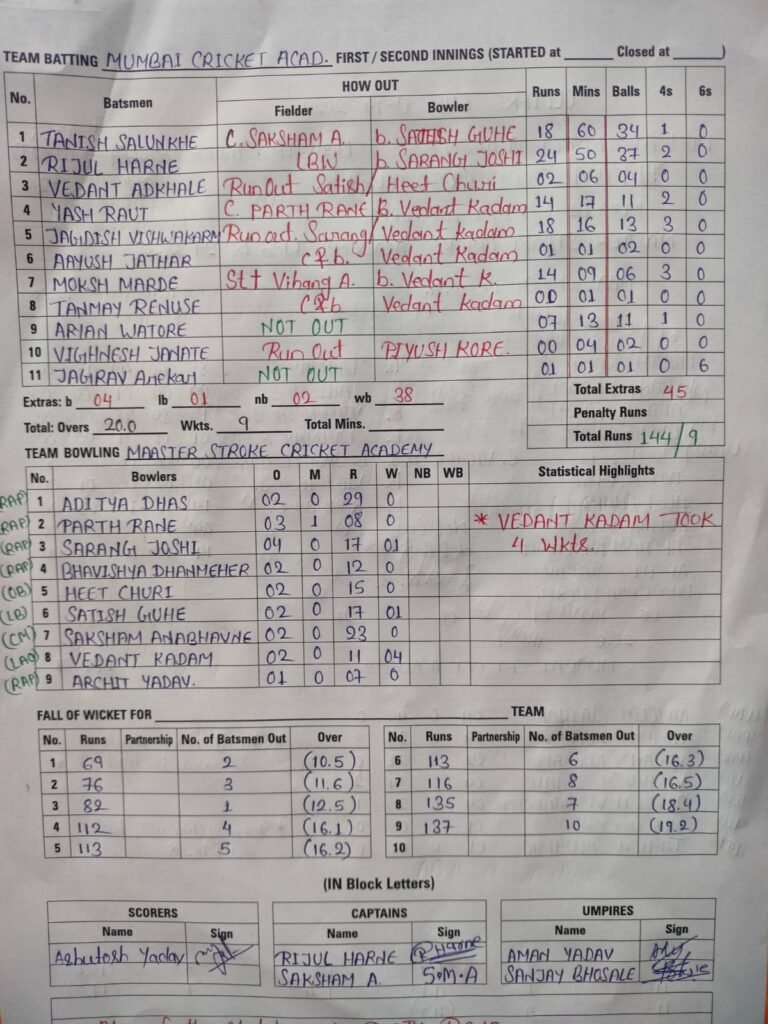 TEAM BATTING MUMBAI CRICKET ACAD. FIRST / SECOND INNINGS (STARTED at ______ Closed at ______)
No. Batsmen HOW OUT Runs Mins Balls 4s 6s
Fielder Bowler
1 TANISH SALUNKHE C. SAKSHAM A. b. SATISH GUHE 18 60 34 1 0
2 RIJUL HARNE LBW b. SARANG JOSHI 24 50 37 2 0
3 VEDANT ADKHALE Run Out Satish/ Heet Churi 02 06 04 0 0
4 YASH RAUT C. PARTH RANE B. Vedant Kadam 14 17 11 2 0
5 JAGIDISH VISHWAKARM Run out. Sarang/ Vedant kadam 18 16 13 3 0
6 AAYUSH JATHAR C & b. Vedant Kadam 01 01 02 0 0
7 MOKSH MARDE St † Vihang A. b. Vedant K. 14 09 06 3 0
8 TANMAY RENUSE C & b Vedant kadam 00 01 01 0 0
9 ARYAN WATORE NOT OUT 07 13 11 1 0
10 VIGHNESH JANATE Run Out PIYUSH KORE. 00 04 02 0 0
11 JAGRAV Anekar NOT OUT 01 01 01 0 6
Extras: b 04 lb 01 nb 02 wb 38 Total Extras 45
Penalty Runs
Total: Overs 20.0 Wkts. 9 Total Mins. ______ Total Runs 144/9
TEAM BOWLING MAASTER STROKE CRICKET ACADEMY
No. Bowlers O M R W NB WB Statistical Highlights
(RAP) 1 ADITYA DHAS 02 0 29 0
(RAP) 2 PARTH RANE 03 1 08 0 * VEDANT KADAM TOOK
(RAP) 3 SARANG JOSHI 04 0 17 01 4 Wkts.
(RAP) 4 BHAVISHYA DHANMEHER 02 0 12 0
(OB) 5 HEET CHURI 02 0 15 0
(LB) 6 SATISH GUHE 02 0 17 01
(CM) 7 SAKSHAM ANABHAVNE 02 0 23 0
(LAO) 8 VEDANT KADAM 02 0 11 04
(RAP) 9 ARCHIT YADAV. 01 0 07 0
FALL OF WICKET FOR ______ TEAM
No. Runs Partnership No. of Batsmen Out Over No. Runs Partnership No. of Batsmen Out Over
1 69 2 (10.5) 6 113 6 (16.3)
2 76 3 (11.6) 7 116 8 (16.5)
3 82 1 (12.5) 8 135 7 (18.4)
4 112 4 (16.1) 9 137 10 (19.2)
5 113 5 (16.2) 10
(IN Block Letters)
SCORERS CAPTAINS UMPIRES
Name Sign Name Sign Name Sign
Ashutosh Yadav RIJUL HARNE RHarne AMAN YADAV
SAKSHAM A. S.M.A SANJAY BHOSALE